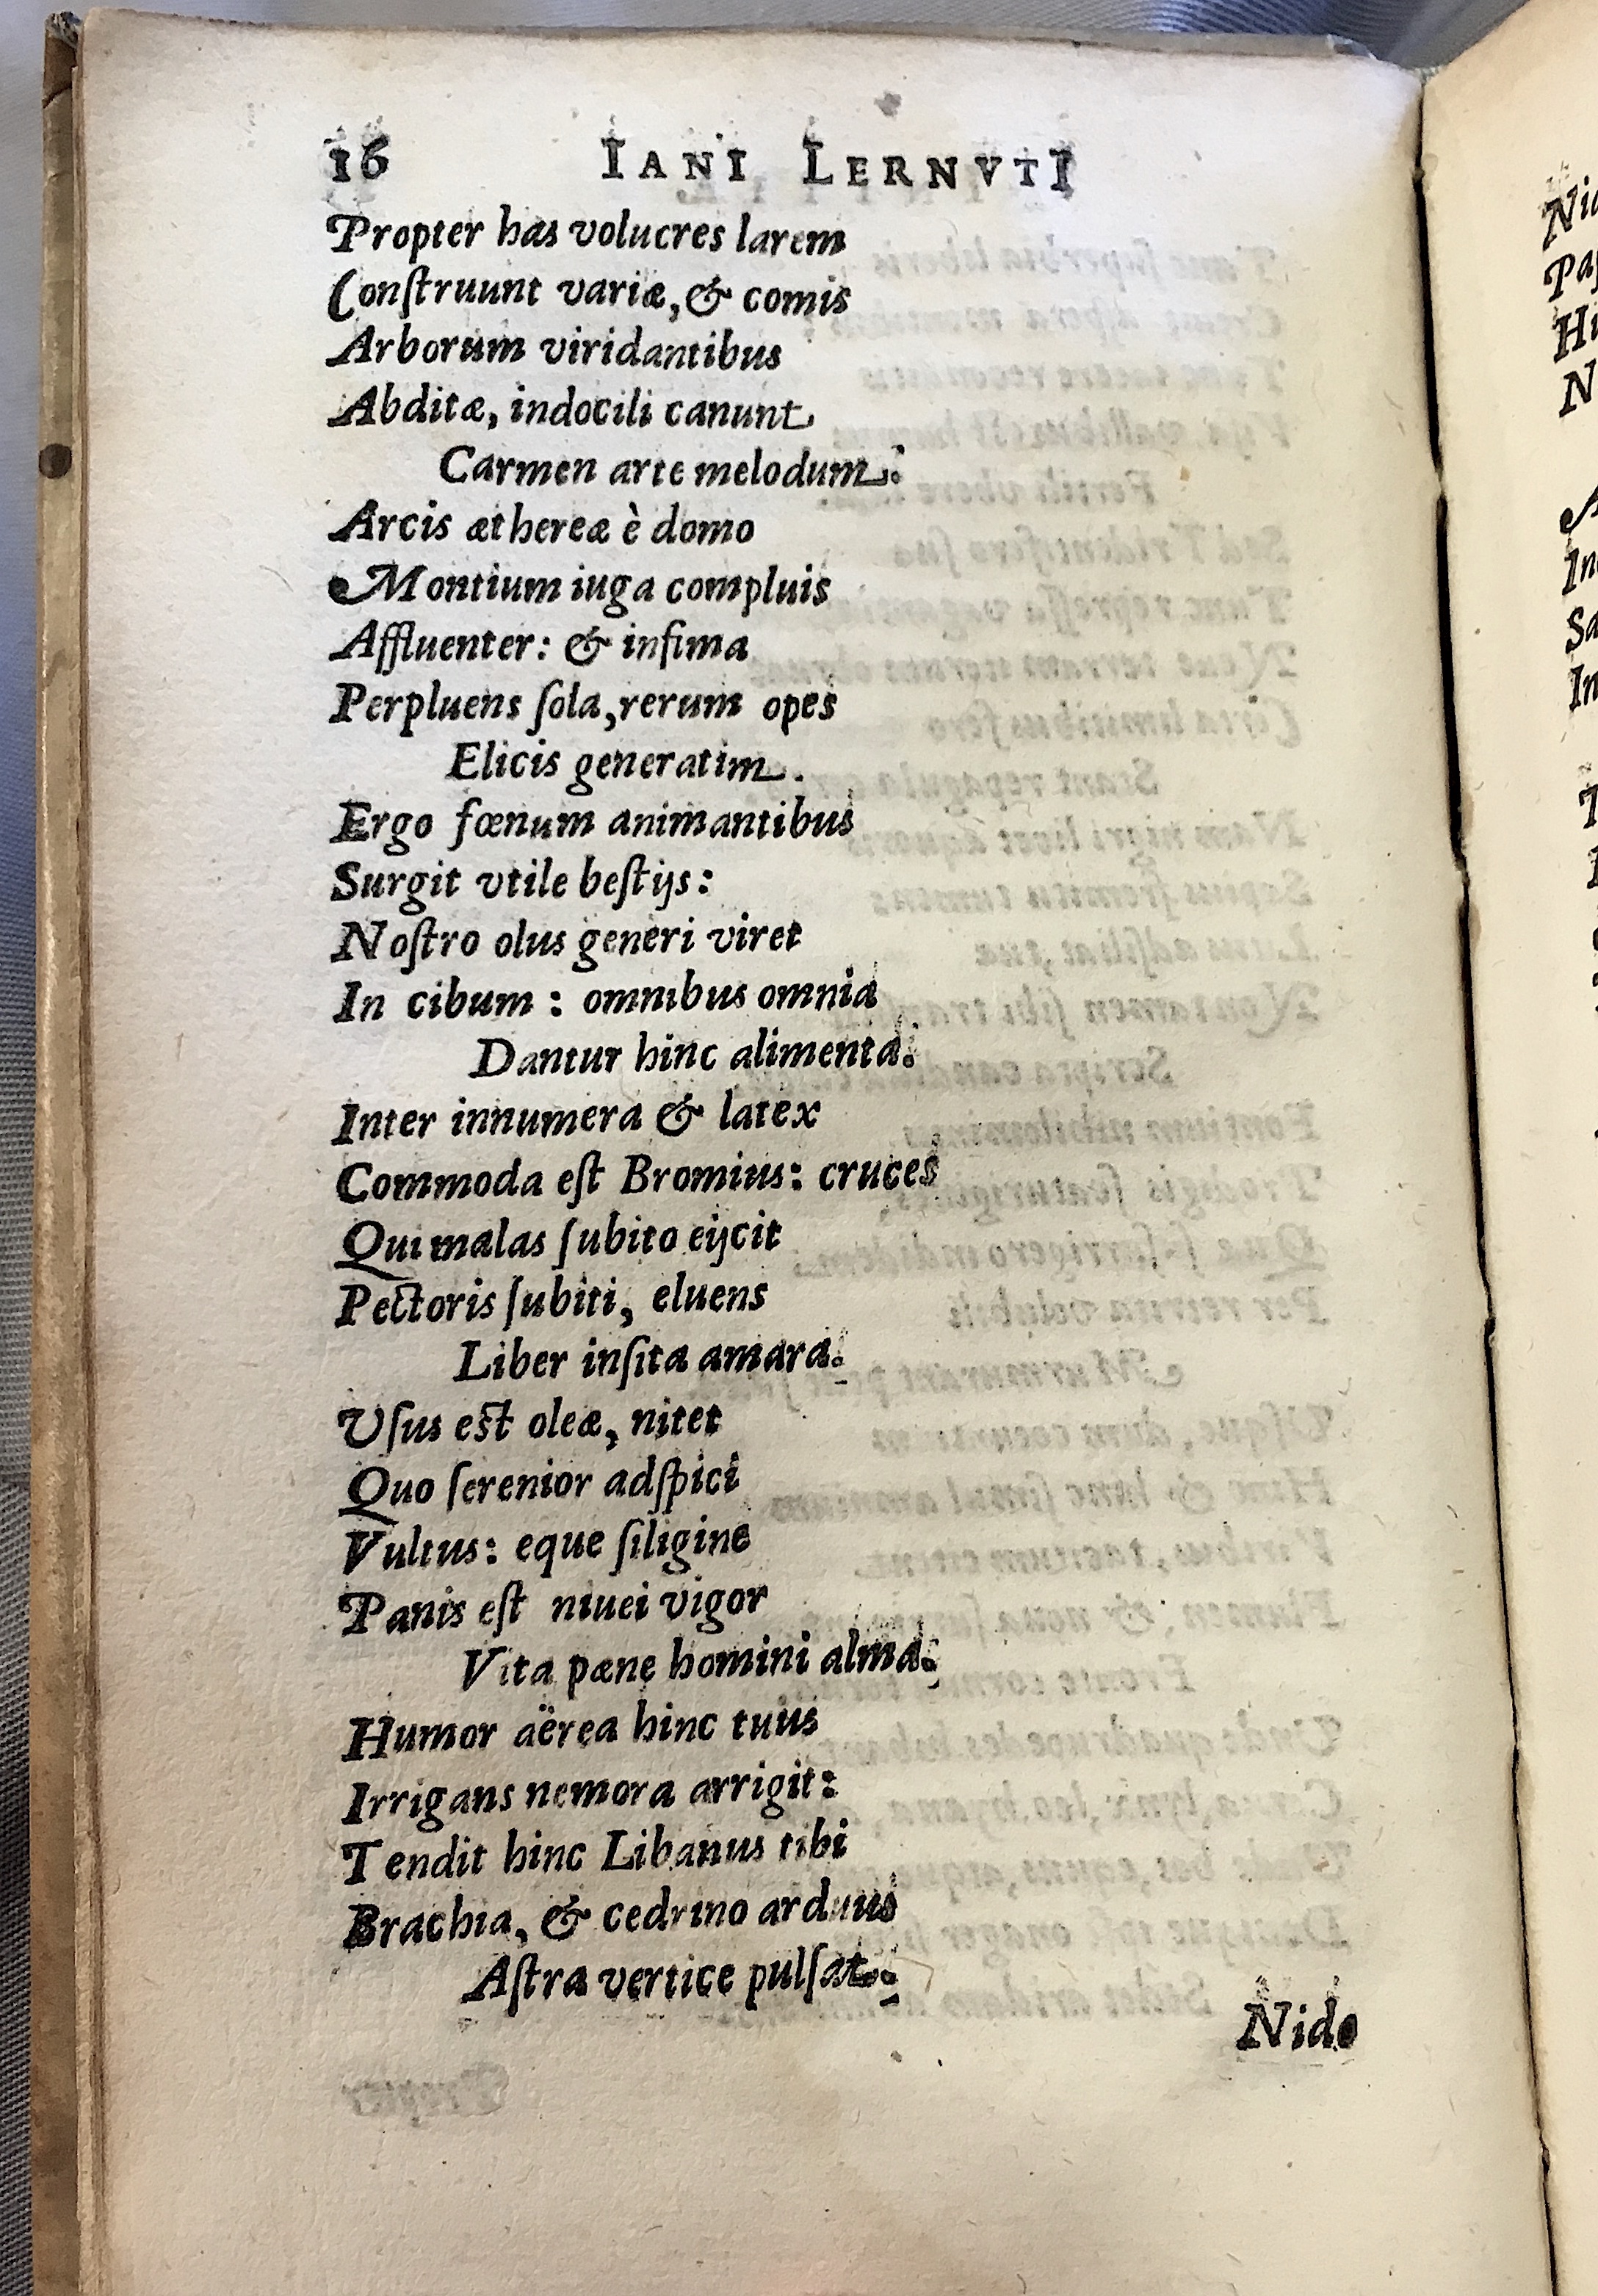 16 IANI LERNVTI
Propter has volucres larem
Conſtruunt variæ, & comis
Arborum viridantibus
Abditæ, indocili canunt
Carmen arte melodum.
Arcis æthereæ è domo
Montium iuga compluis
Affluenter: & infima
Perpluens ſola, rerum opes
Elicis generatim.
Ergo fœnum animantibus
Surgit vtile beſtijs:
Noſtro olus generi viret
In cibum: omnibus omnia
Dantur hinc alimenta.
Inter innumera & latex
Commoda eſt Bromius: cruces
Qui malas ſubito eijcit
Pectoris ſubiti, eluens
Liber inſita amara.
Vſus eſt oleæ, nitet
Quo ſerenior adſpici
Vultus: eque ſiligine
Panis eſt niuei vigor
Vita pæne homini alma.
Humor aërea hinc tuus
Irrigans nemora arrigit:
Tendit hinc Libanus tibi
Brachia, & cedrino arduus
Aſtra vertice pulſat.
Nido